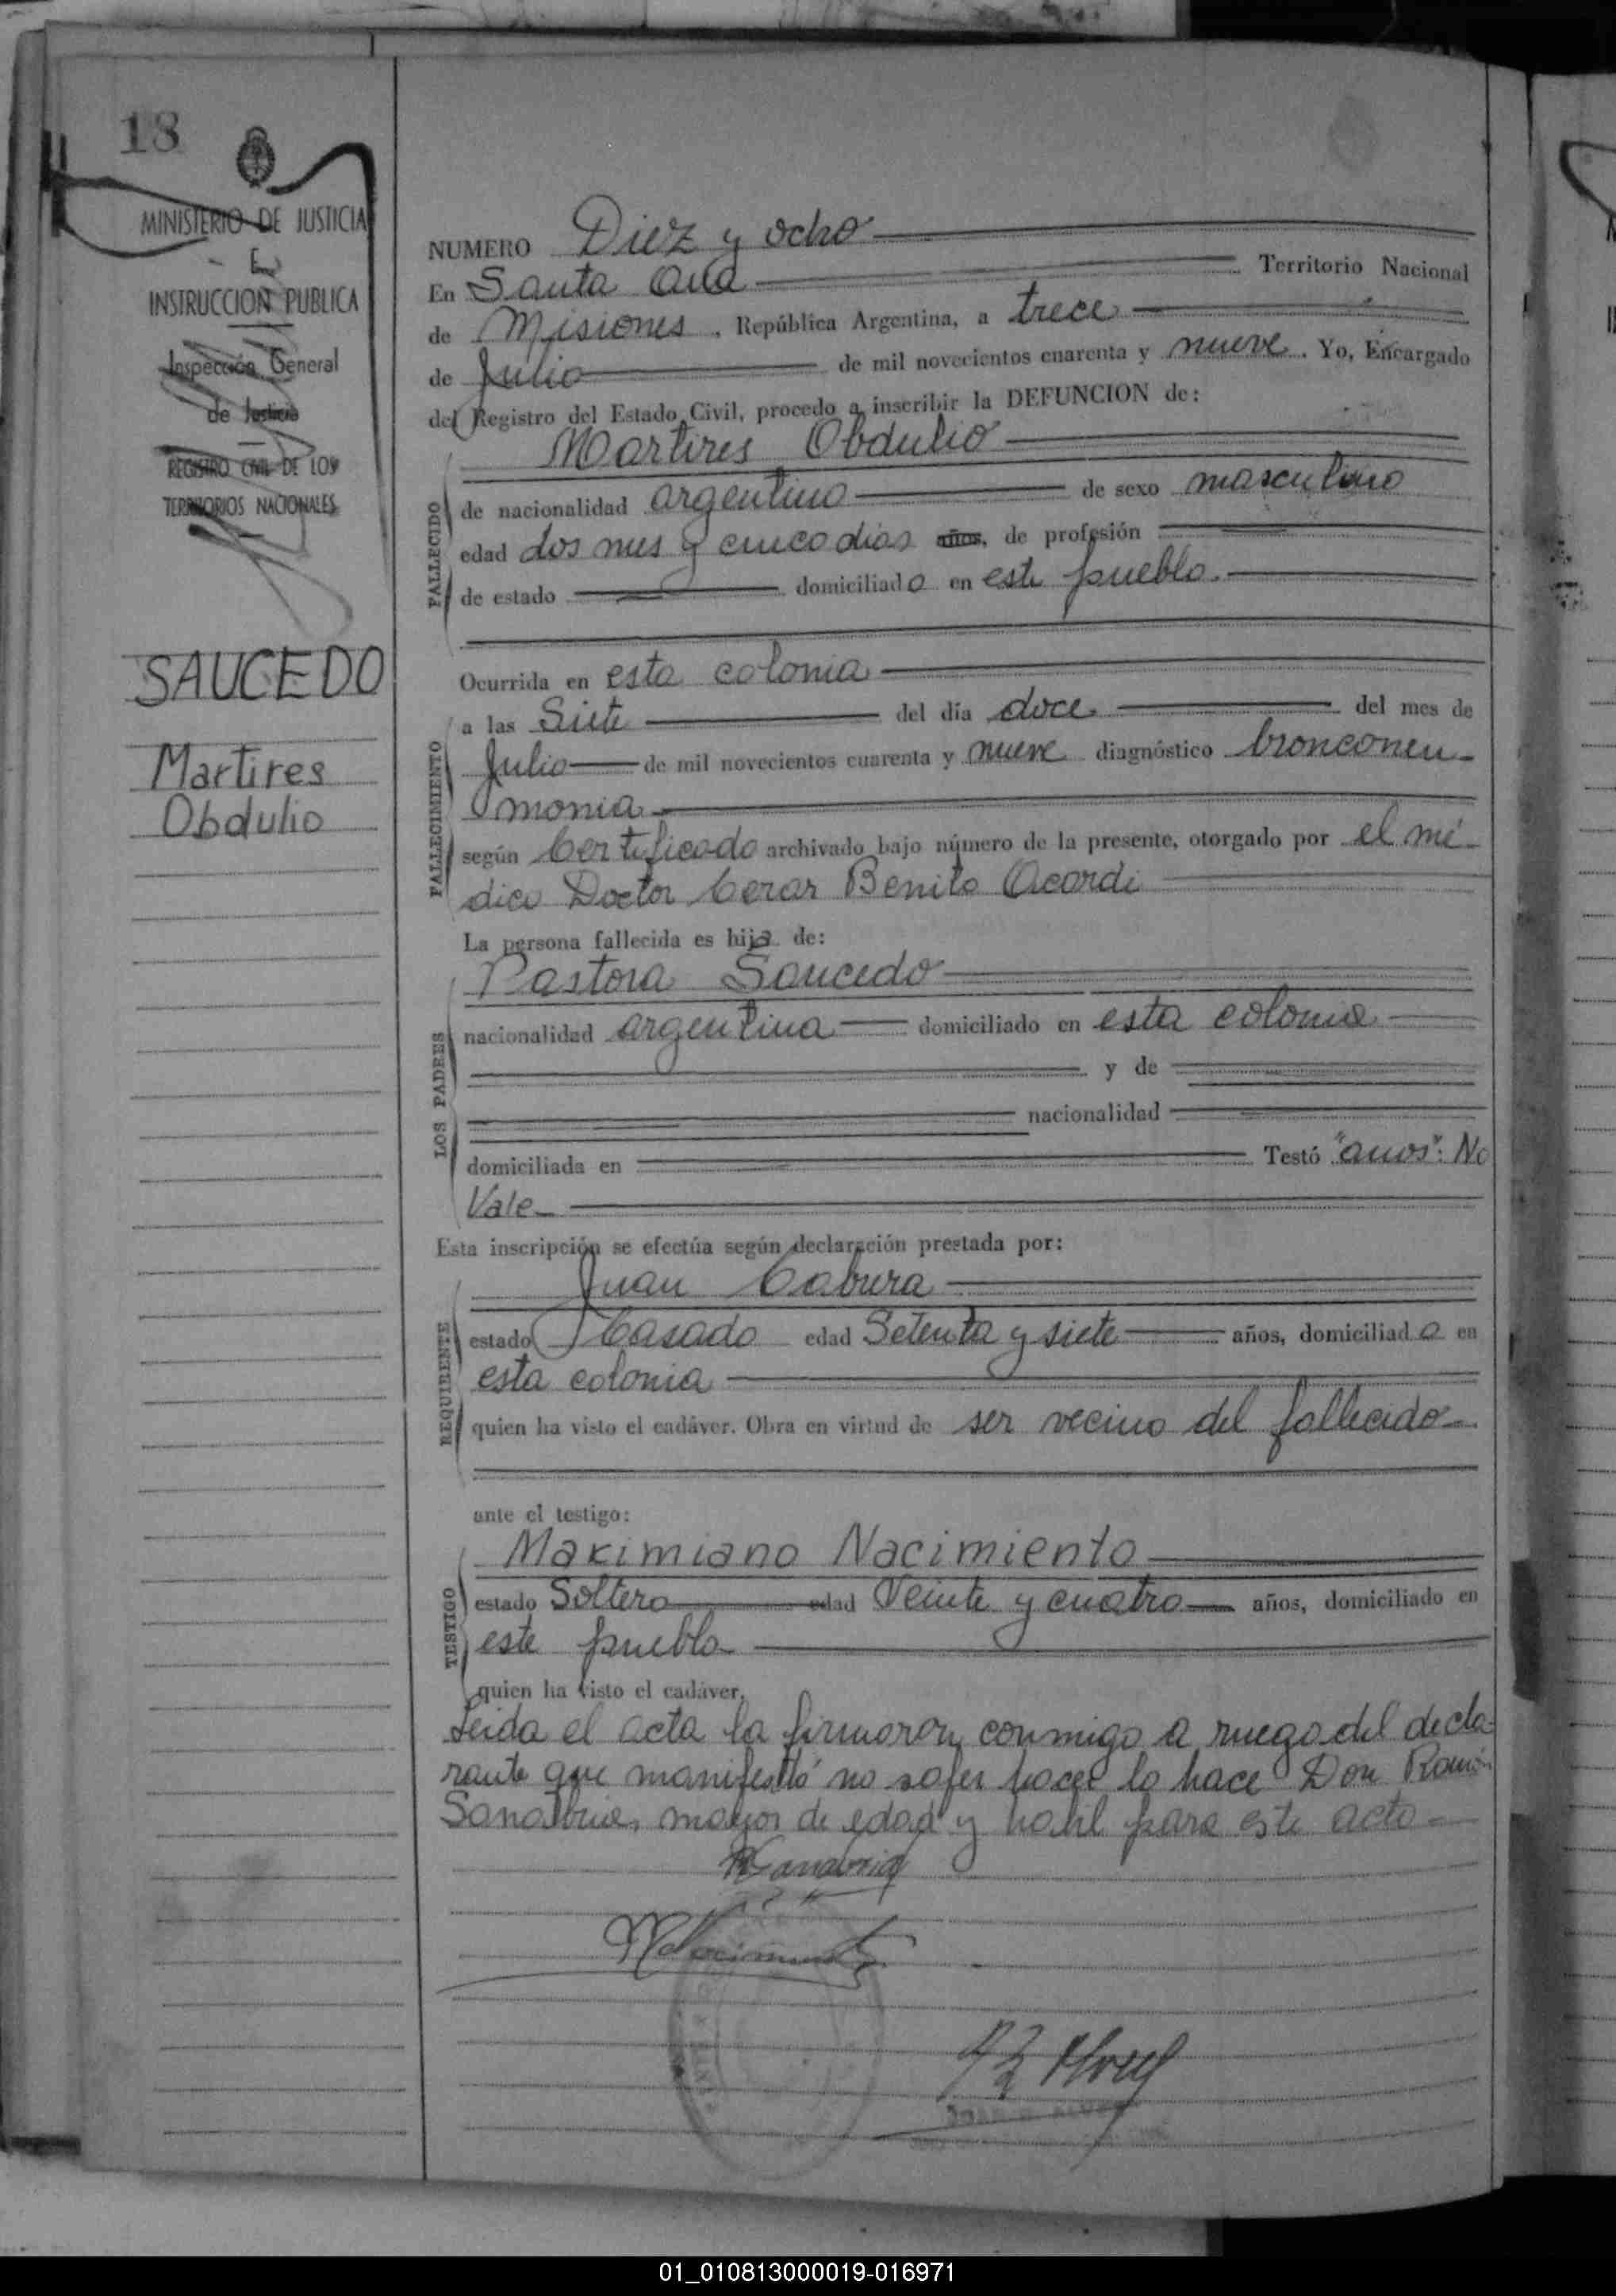 18
MINISTERIO DE JUSTICIA
E
INSTRUCCION PUBLICA
Inspección General
de Justicia
REGISTRO CIVIL DE LOS
TERRITORIOS NACIONALES
SAUCEDO
Martires
Obdulio
NUMERO Diez y ocho
En Santa Ana Territorio Nacional
de Misiones, República Argentina, a trece
de Julio de mil novecientos cuarenta y nueve. Yo, Encargado
del Registro del Estado Civil, procedo a inscribir la DEFUNCION de:
Martires Obdulio
FALLECIDO
de nacionalidad argentino de sexo masculino
edad dos mes y cinco dias años, de profesión
de estado domiciliado en este pueblo.
Ocurrida en esta colonia
FALLECIMIENTO
a las Siete del día doce del mes de
Julio de mil novecientos cuarenta y nueve diagnóstico bronconeu-
monia
según Certificado archivado bajo número de la presente, otorgado por el mé-
dico Doctor Cerar Benito Acardi
La persona fallecida es hijo de:
LOS PADRES
Pastora Saucedo
nacionalidad argentina domiciliado en esta colonia
y de
nacionalidad
domiciliada en Testó "anos": No
Vale
Esta inscripción se efectúa según declaración prestada por:
REQUIRENTE
Juan Cabrera
estado Casado edad Setenta y siete años, domiciliado en
esta colonia
quien ha visto el cadáver. Obra en virtud de ser vecino del fallecido
ante el testigo:
TESTIGO
Maximiano Nacimiento
estado Soltero edad Veinte y cuatro años, domiciliado en
este pueblo
quien ha visto el cadáver.
Leida el acta la firmaron conmigo a ruego del decla-
rante que manifestó no saber hacer lo hace Don Ramón
Sanabria, mayor de edad y habil para este acto
RSanabria
MNacimiento
01_010813000019-016971